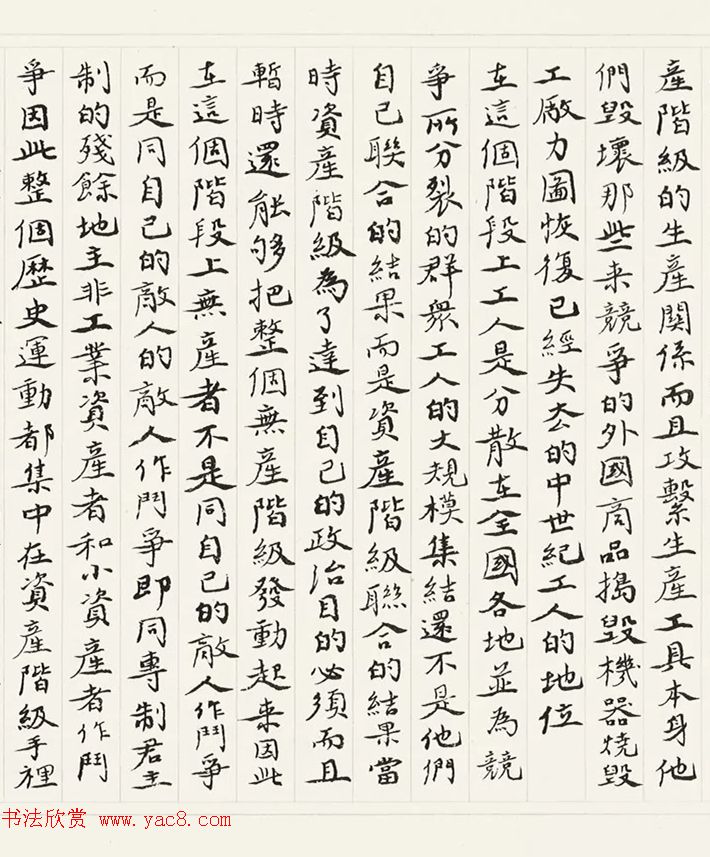 産階級的生産關係而且攻繫生産工具本身他
們毀壞那些来競爭的外國商品搗毀機器燒毀
工廠力圖恢復已經失去的中世紀工人的地位
在這個階段上工人是分散在全國各地並為競
爭所分裂的群衆工人的大規模集結還不是他們
自己聯合的結果而是資産階級聯合的結果當
時資産階級為了達到自己的政治目的必須而且
暫時還能够把整個無産階級發動起来因此
在這個階段上無産者不是同自己的敵人作鬥爭
而是同自己的敵人的敵人作鬥爭即同專制君主
制的殘餘地主非工業資産者和小資産者作鬥
爭因此整個歷史運動都集中在資産階級手裡
书法欣赏 www.yac8.com